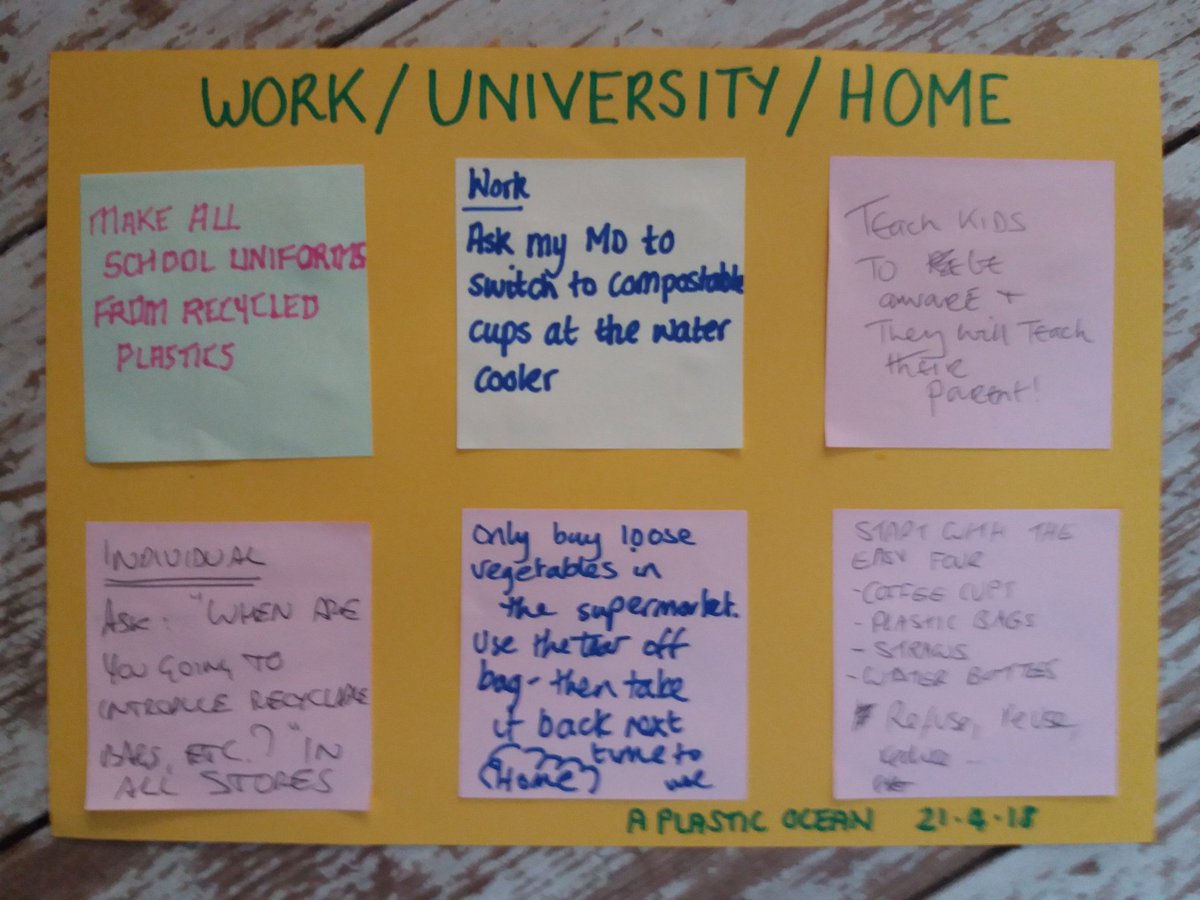 WORK / UNIVERSITY / HOME
MAKE ALL
SCHOOL UNIFORMS
FROM RECYCLED
PLASTICS
Work
Ask my MD to
switch to compostable
cups at the water
cooler
TEACH KIDS
TO BE
AWARE +
They will TEACH
their
parent!
INDIVIDUAL
ASK: "WHEN ARE
YOU GOING TO
INTRODUCE RECYCLABLE
BAGS, ETC.?" IN
ALL STORES
Only buy loose
vegetables in
the supermarket.
Use the tear off
bag - then take
it back next
time to
(Home) use
START WITH THE
EASY FOUR
- COFFEE CUPS
- PLASTIC BAGS
- STRAWS
- WATER BOTTLES
Refuse, reuse,
reduce ...
A PLASTIC OCEAN 21-4-18